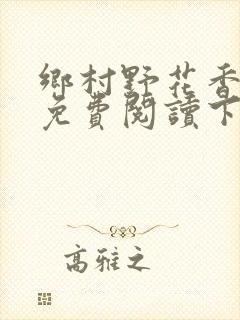 鄉村野花香
免費閱讀下
高雅之